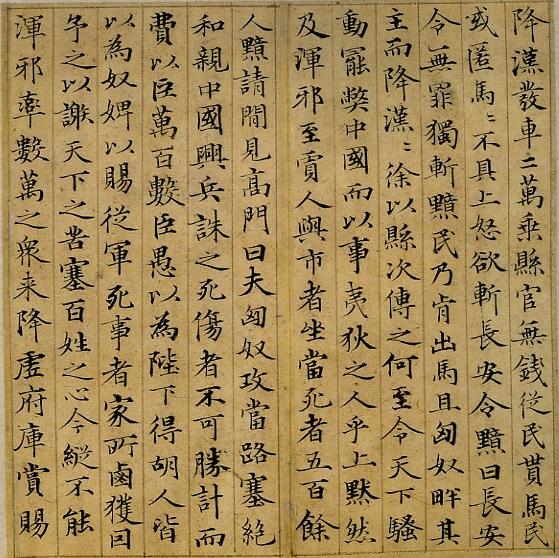 降漢發車二萬乘縣官無錢從民貰馬民
或匿馬〻不具上怒欲斬長安令黯曰長安
令無罪獨斬黯民乃肯出馬且匈奴畔其
主而降漢〻徐以縣次傳之何至令天下騷
動罷弊中國而以事夷狄之人乎上黙然
及渾邪至賈人與市者坐當死者五百餘
人黯請間見髙門曰夫匈奴攻當路塞絶
和親中國興兵誅之死傷者不可勝計而
費以巨萬百數臣愚以為陛下得胡人皆
以為奴婢以賜從軍死事者家所鹵獲因
予之以謝天下之苦塞百姓之心今縱不能
渾邪率數萬之衆来降虚府庫賞賜